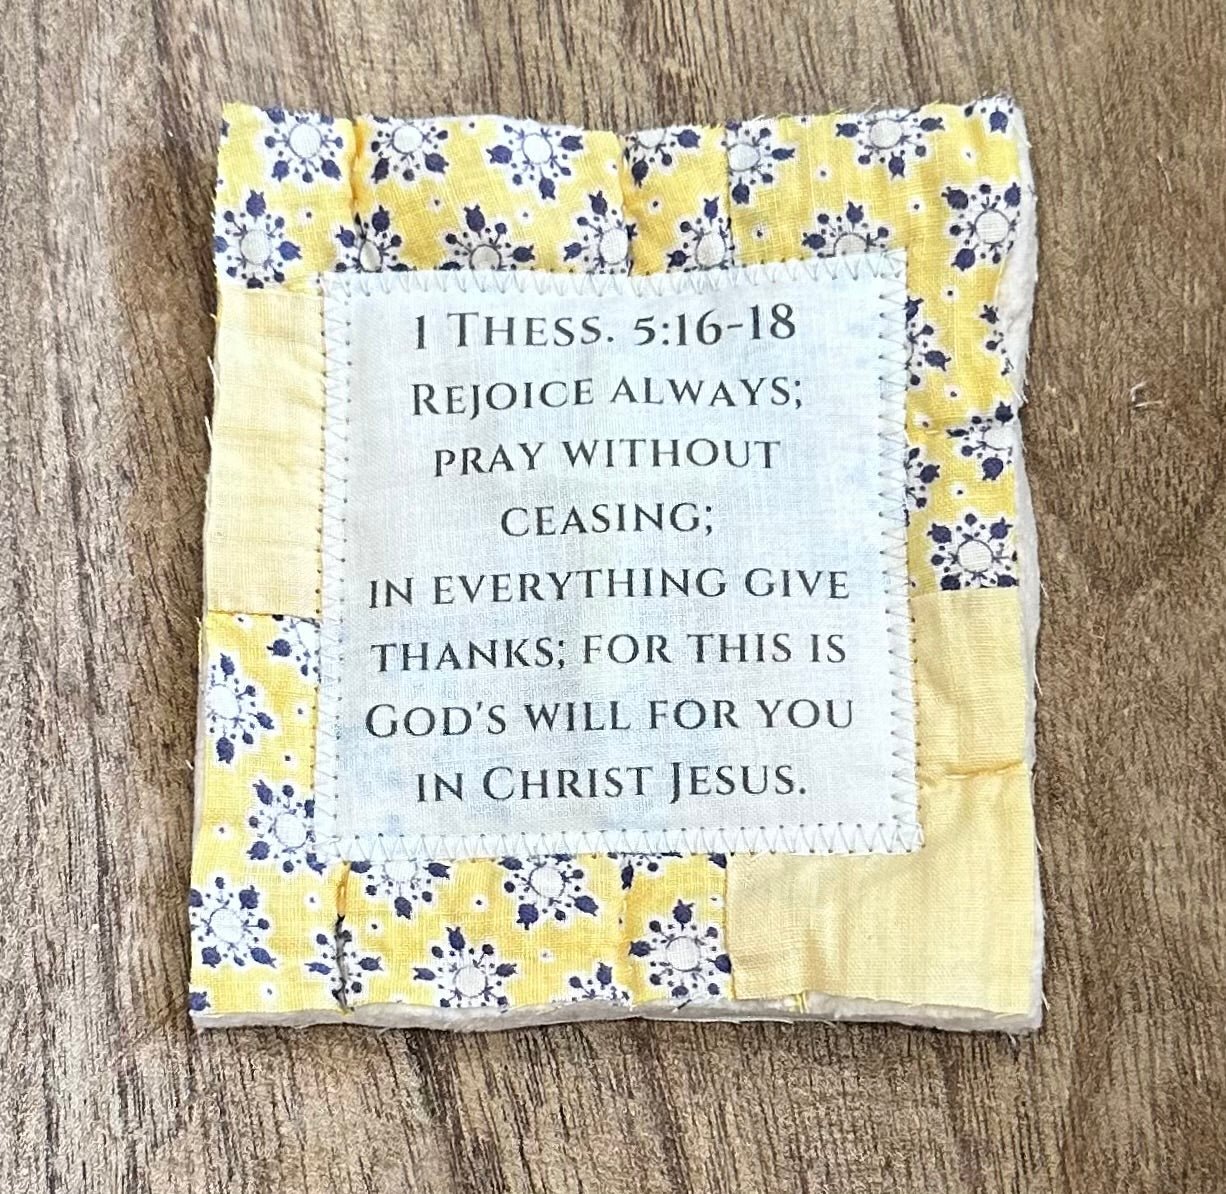 1 Thess. 5:16-18
Rejoice always;
pray without
ceasing;
in everything give
thanks; for this is
God's will for you
in Christ Jesus.